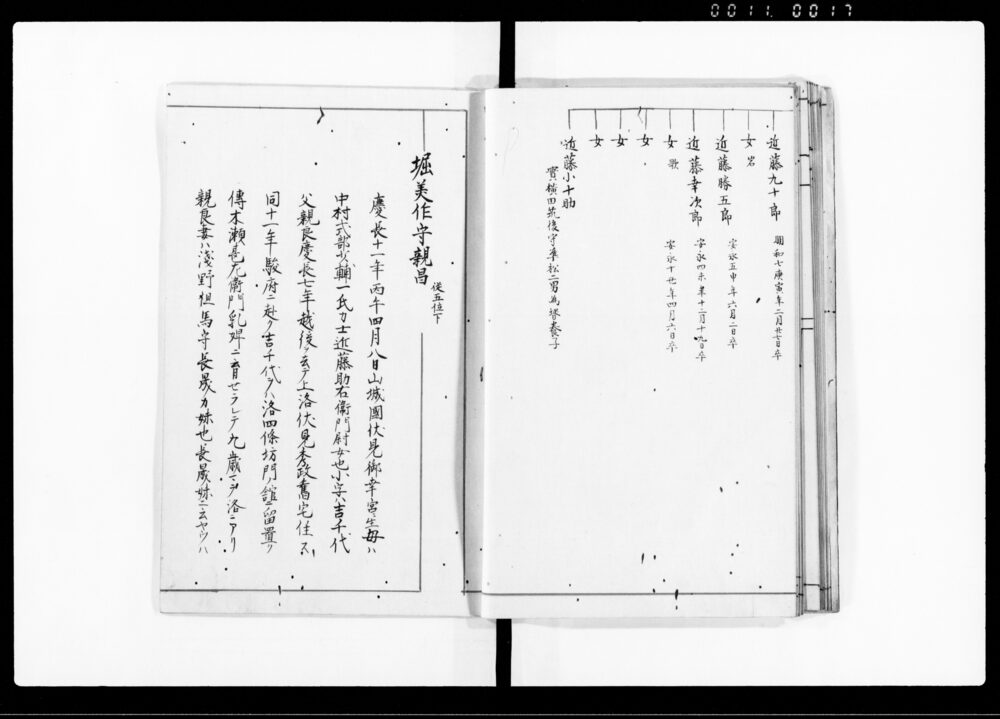 0011. 0017
近藤九十郎 明和七庚寅年二月廿七日卒
女 岩
近藤勝五郎 安永五申年六月二日卒
近藤幸次郎 安永四未年十二月十九日卒
女 歌 安永十丑年四月六日卒
女
女
女
近藤小十助
實横田筑後守準松二男為聟養子
堀美作守親昌 従五位下
慶長十一年丙午四月八日山城國伏見御幸宮ニ生母ハ
中村式部少輔一氏カ士近藤助右衛門尉女也小字ハ吉千代
父親良慶長七年越後ヲ去テ上洛伏見秀政舊宅住ス
同十一年駿府ニ赴ク吉千代ヲハ洛四條坊門ノ舘ニ留置ク
傳木瀬甚左衛門乳婢ニ育セラレテ九歳マテ洛ニアリ
親良妻ハ淺野但馬守長晟カ妹也長晟妹ニ云ヤウハ